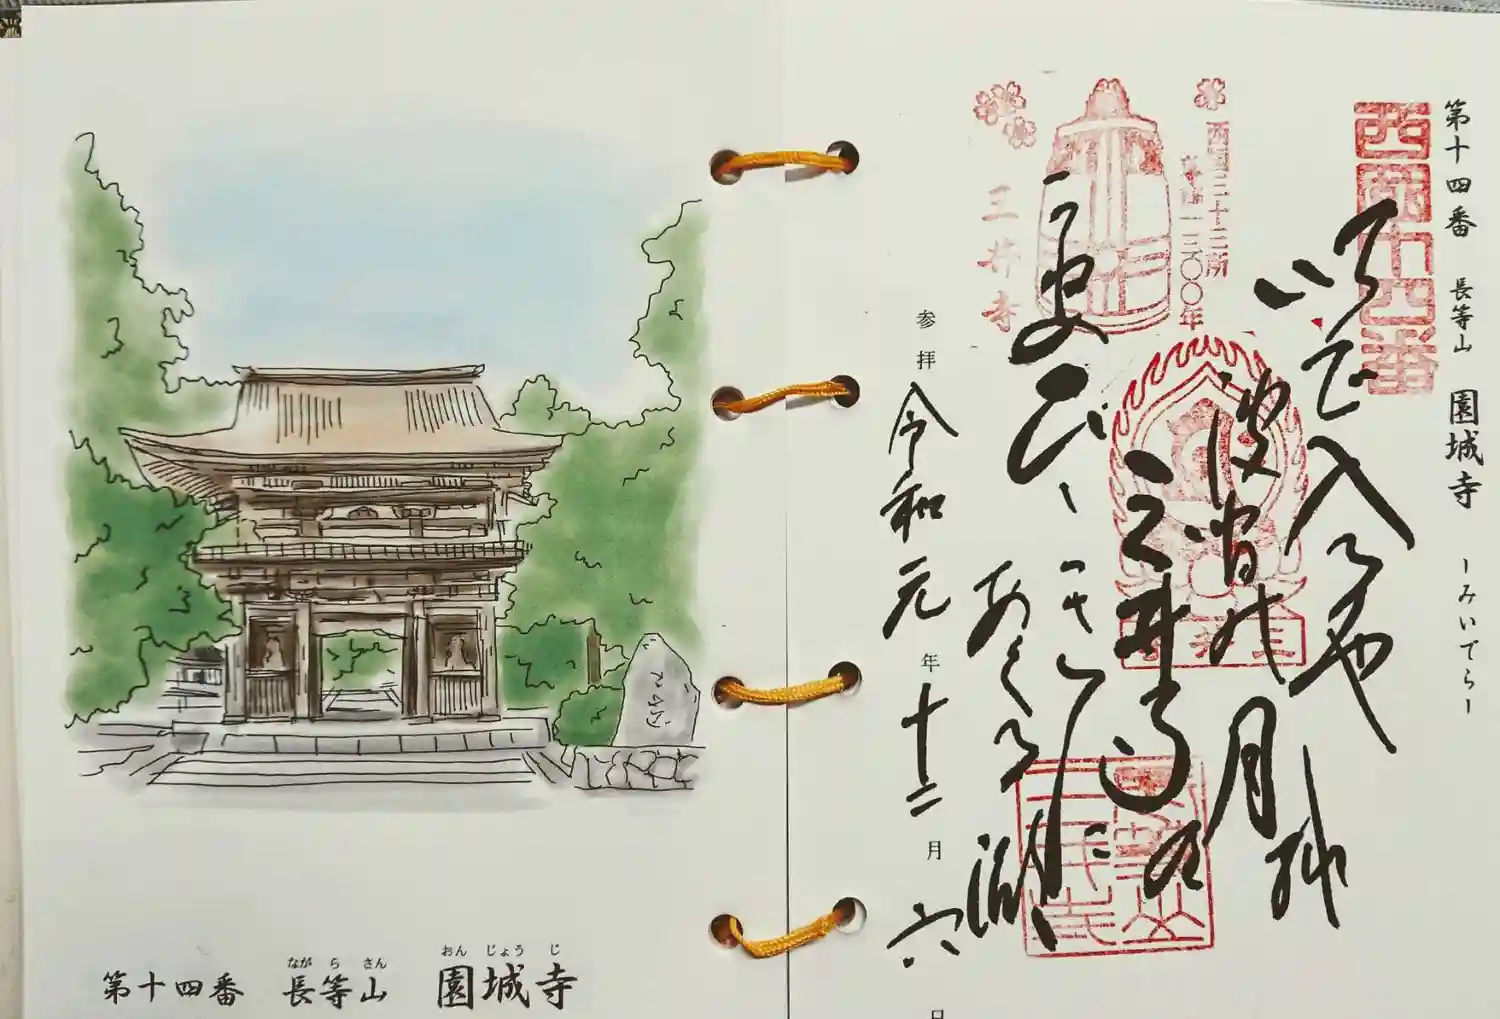 第十四番 長等山 園城寺 ーみいでらー
西国十四番
いで入るや
波間の月
三井寺の
あくる湖
西国三十三所
草創一三〇〇年
三井寺
三井寺
参拝 令和元年十二月六日
おん じょう じ
なが ら さん
第十四番 長等山 園城寺